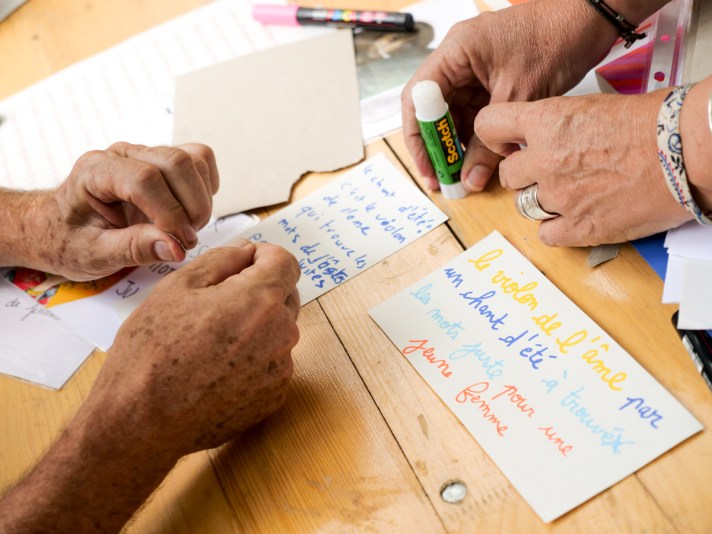 le chant d'été
C'est le violon
de l'âme
qui trouve les
mots
Scotch
le violon de l'âme
un chant d'été par
les mots juste à trouver
pour une
jeune femme